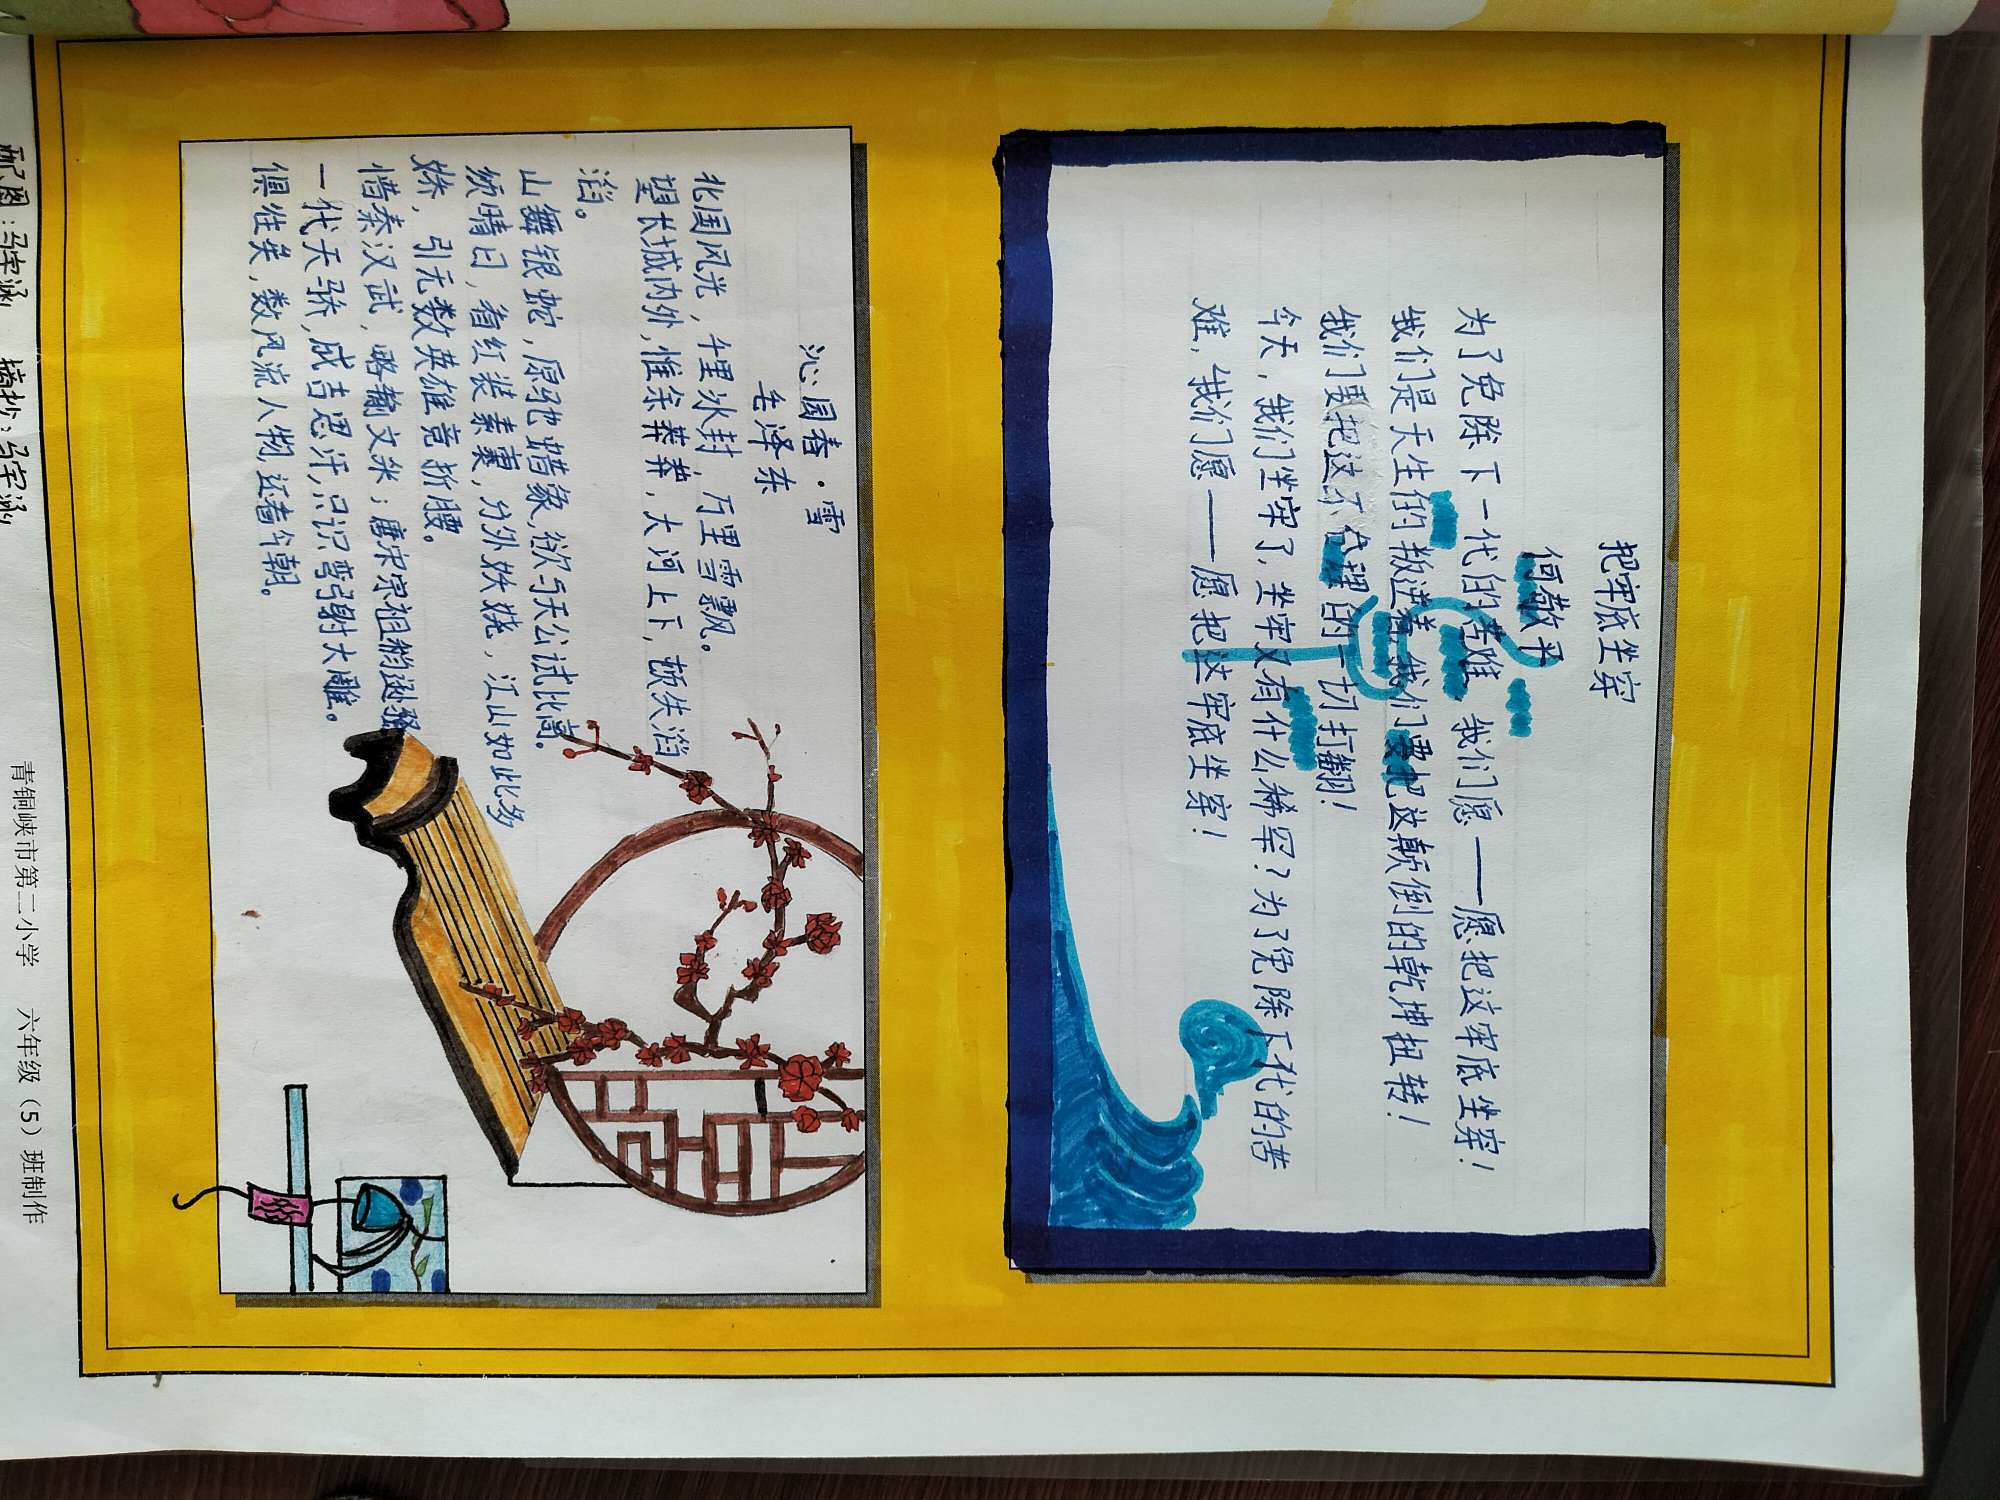 把牢底坐穿
何敬平
为了免除下一代的苦难，我们愿——愿把这牢底坐穿！
我们是天生的叛逆者，我们要把这颠倒的乾坤扭转！
我们要把这不合理的一切打翻！
今天，我们坐牢了，坐牢又有什么稀罕？为了免除下代的苦
难，我们愿——愿把这牢底坐穿！
沁园春·雪
毛泽东
北国风光，千里冰封，万里雪飘。
望长城内外，惟余莽莽，大河上下，顿失滔
滔。
山舞银蛇，原驰蜡象，欲与天公试比高。
须晴日，看红装素裹，分外妖娆，江山如此多
娇，引无数英雄竞折腰。
惜秦汉武，略输文采；唐宋宗祖稍逊骚
一代天骄，成吉思汗，只识弯弓射大雕。
俱往矣，数风流人物，还看今朝。
配图：马宇涵 摘抄：马宇涵
青铜峡市第二小学 六年级（5）班制作